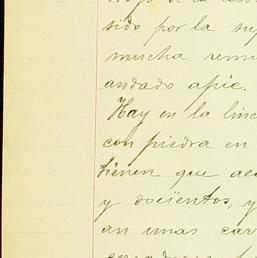 de la
sido por la su
mucha rem
andado apie.
Hay en la linc
con piedra en
tienen que ac
y docientos, y
an unas car